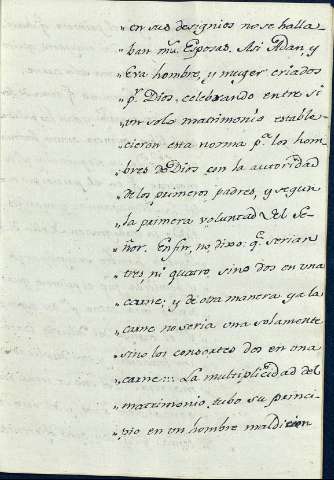 "en sus designios no se halla
"ban m.s Esposas. Asi Adan, y
"Eva hombre, y muger criados
"p.r Dios, celebrando entre si
"un solo matrimonio estable-
"cieron esta norma p.a los hom
"bres de Dios con la autoridad
"de los primeros padres, y segun
"la primera voluntad del Se-
"ñor. En fin, no, dixo: q.e serian
"tres, ni quatro, sino dos en una
"carne; y de otra manera ya la
"carne no seria una solamente
"sino los consortes dos en una
"carne::: La multiplicidad del
"matrimonio tubo su princi-
"pio en un hombre maldicion